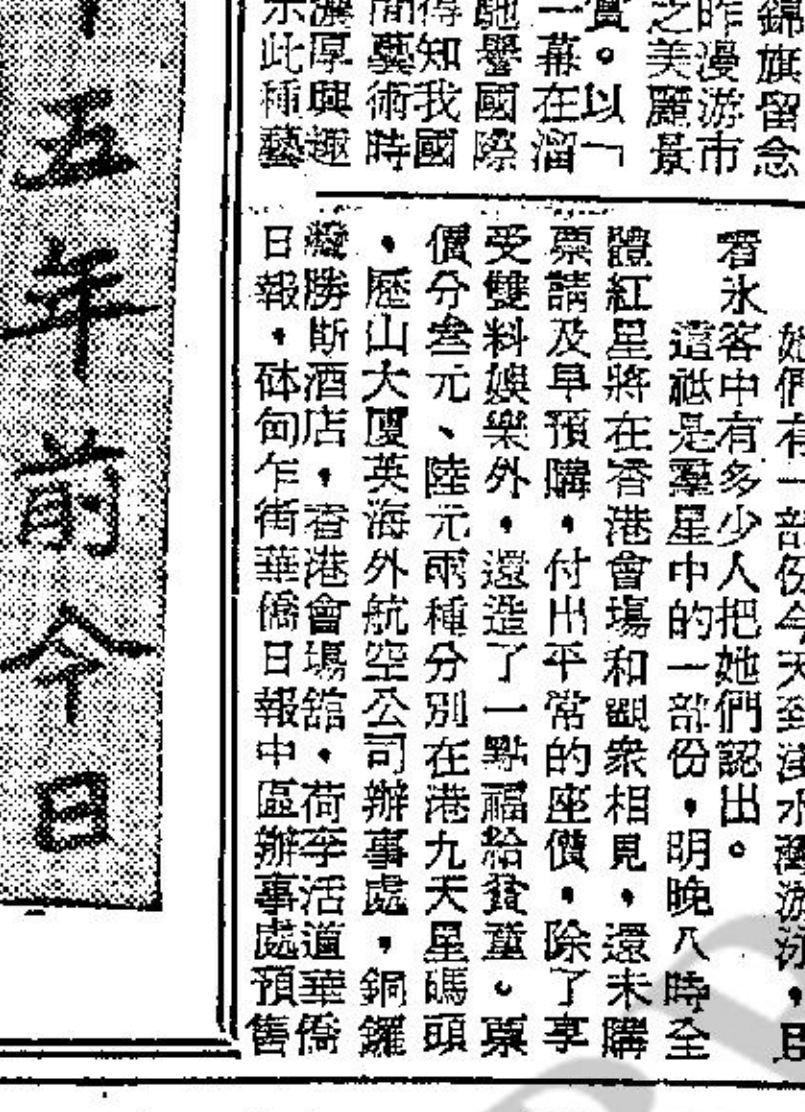 錦旗留念
昨漫游市
之美麗景
賓。以「
一幕在溜
馳譽國際
得知我國
間藝術時
濃厚興趣
示此種藝
她們有一部份今天到淺水灣游泳,且
看氷客中有多少人把她們認出。
這祗是羣星中的一部份,明晚八時全
體紅星將在香港會塲和觀衆相見,還未購
票請及早預購,付出平常的座價,除了享
受雙料娛樂外,還造了一點福給貧童。票
價分叁元、陸元兩種分別在港九天星碼頭
,歷山大廈英海外航空公司辦事處,銅鑼
灣勝斯酒店,香港會塲舘,荷李活道華僑
日報,砵甸乍街華僑日報中區辦事處預售
五年前今日